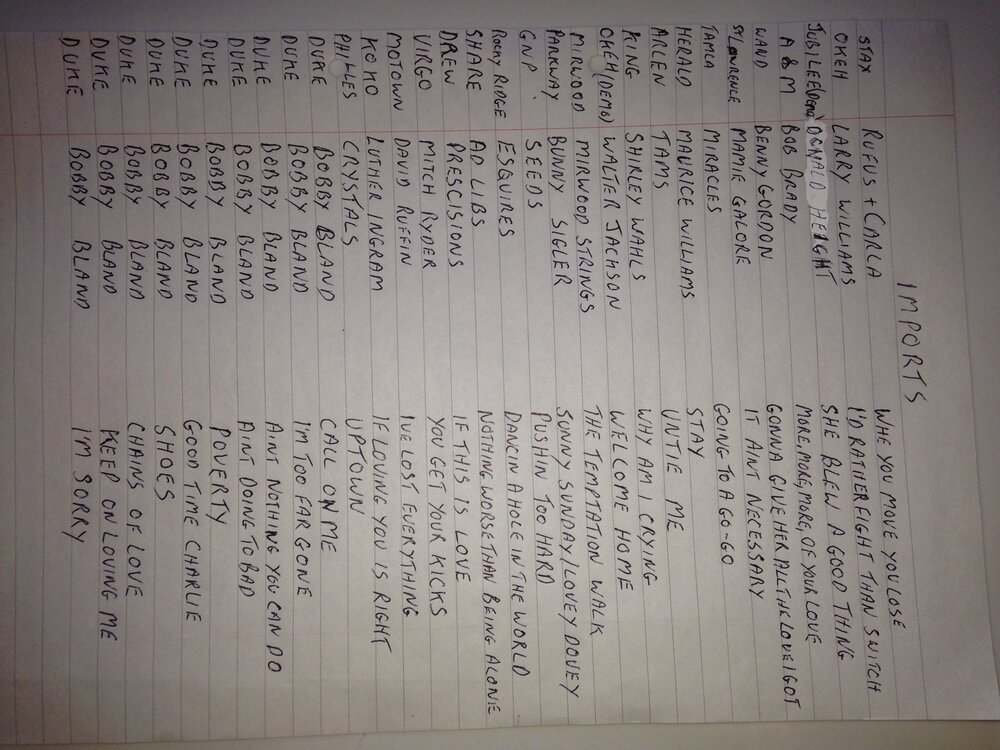 IMPORTS
STAX RUFUS + CARLA WHE YOU MOVE YOU LOSE
OKEH LARRY WILLIAMS I'D RATHER FIGHT THAN SWITCH
JUBILEE(Demo) DONALD HEIGHT SHE BLEW A GOOD THING
A & M BOB BRADY MORE, MORE, MORE, OF YOUR LOVE
WAND BENNY GORDON GONNA GIVE HER ALL THE LOVE I GOT
ST LAWRENCE MAMIE GALORE IT AINT NECESSARY
TAMLA MIRACLES GOING TO A GO-GO
HERALD MAURICE WILLIAMS STAY
ARLEN TAMS UNTIE ME
KING SHIRLEY WAHLS WHY AM I CRYING
OKEH (DEMO) WALTER JACKSON WELCOME HOME
MIRWOOD MIRWOOD STRINGS THE TEMPTATION WALK
PARKWAY BUNNY SIGLER SUNNY SUNDAY/LOVEY DOVEY
GNP. SEEDS PUSHIN TOO HARD
ROCKY RIDGE ESQUIRES DANCIN A HOLE IN THE WORLD
SHARE AD LIBS NOTHING WORSE THAN BEING ALONE
DREW PRESCISIONS IF THIS IS LOVE
VIRGO MITCH RYDER YOU GET YOUR KICKS
MOTOWN DAVID RUFFIN IVE LOST EVERYTHING
KOKO LUTHER INGRAM IF LOVING YOU IS RIGHT
PHILLES CRYSTALS UPTOWN
DUKE BOBBY BLAND CALL ON ME
DUKE BOBBY BLAND IM TOO FAR GONE
DUKE BOBBY BLAND AINT NOTHING YOU CAN DO
DUKE BOBBY BLAND AINT DOING TO BAD
DUKE BOBBY BLAND POVERTY
DUKE BOBBY BLAND GOOD TIME CHARLIE
DUKE BOBBY BLAND SHOES
DUKE BOBBY BLAND CHAINS OF LOVE
DUKE BOBBY BLAND KEEP ON LOVING ME
DUKE BOBBY BLAND I'M SORRY